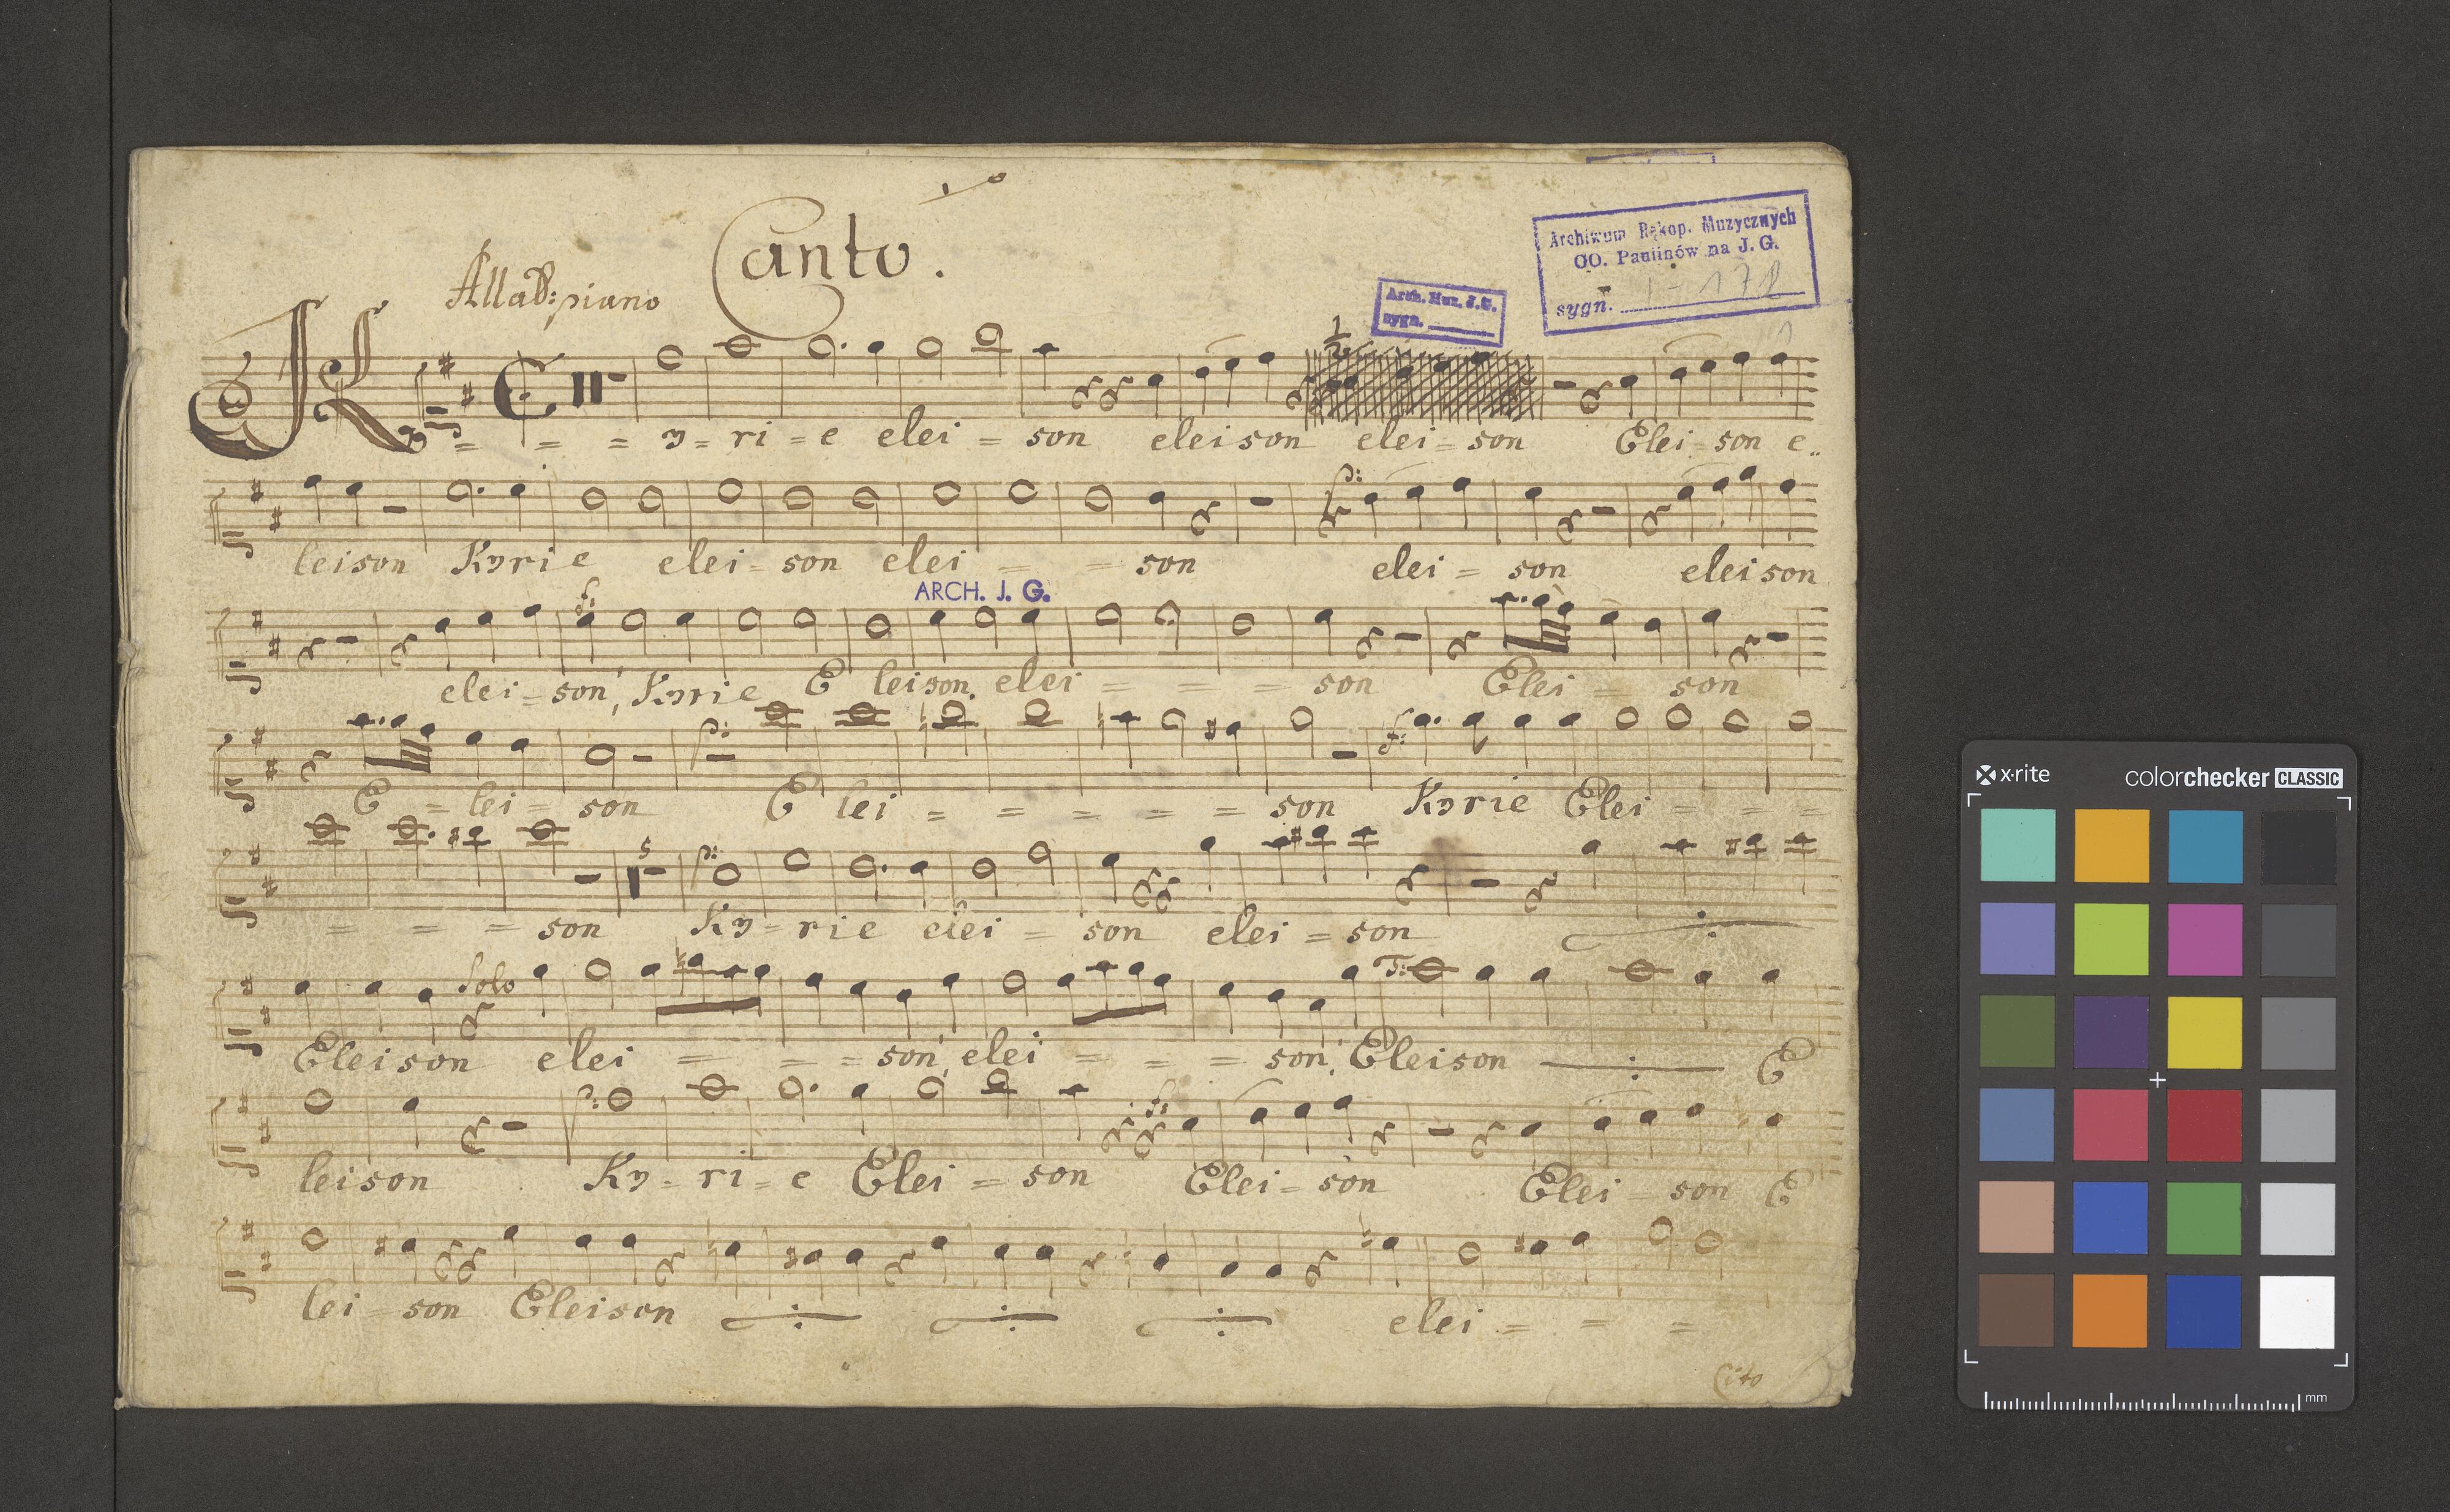 Canto.
Archiwum Rękop. Muzycznych
OO. Paulinów na J. G.
sygn. I-178
Arch. Muz. J. G.
sygn.
Allab: piano
Ky = = = y = ri = e elei = son eleison elei = son Elei = son e..
leison Kyrie elei = son elei = = son elei = son eleison
ARCH. J. G.
elei = son, Kyrie E leison, elei = = = son Elei = son
E = lei = son E lei = = = = = son Kyrie Elei = = =
= = = son Ky = rie elei = son elei = son
Solo
Eleison elei = = = son, elei = = = son, Eleison E
leison Ky = ri = e Elei = son Elei = son Elei = son E
lei = son Eleison elei = = =
Cito
x·rite colorchecker CLASSIC
mm